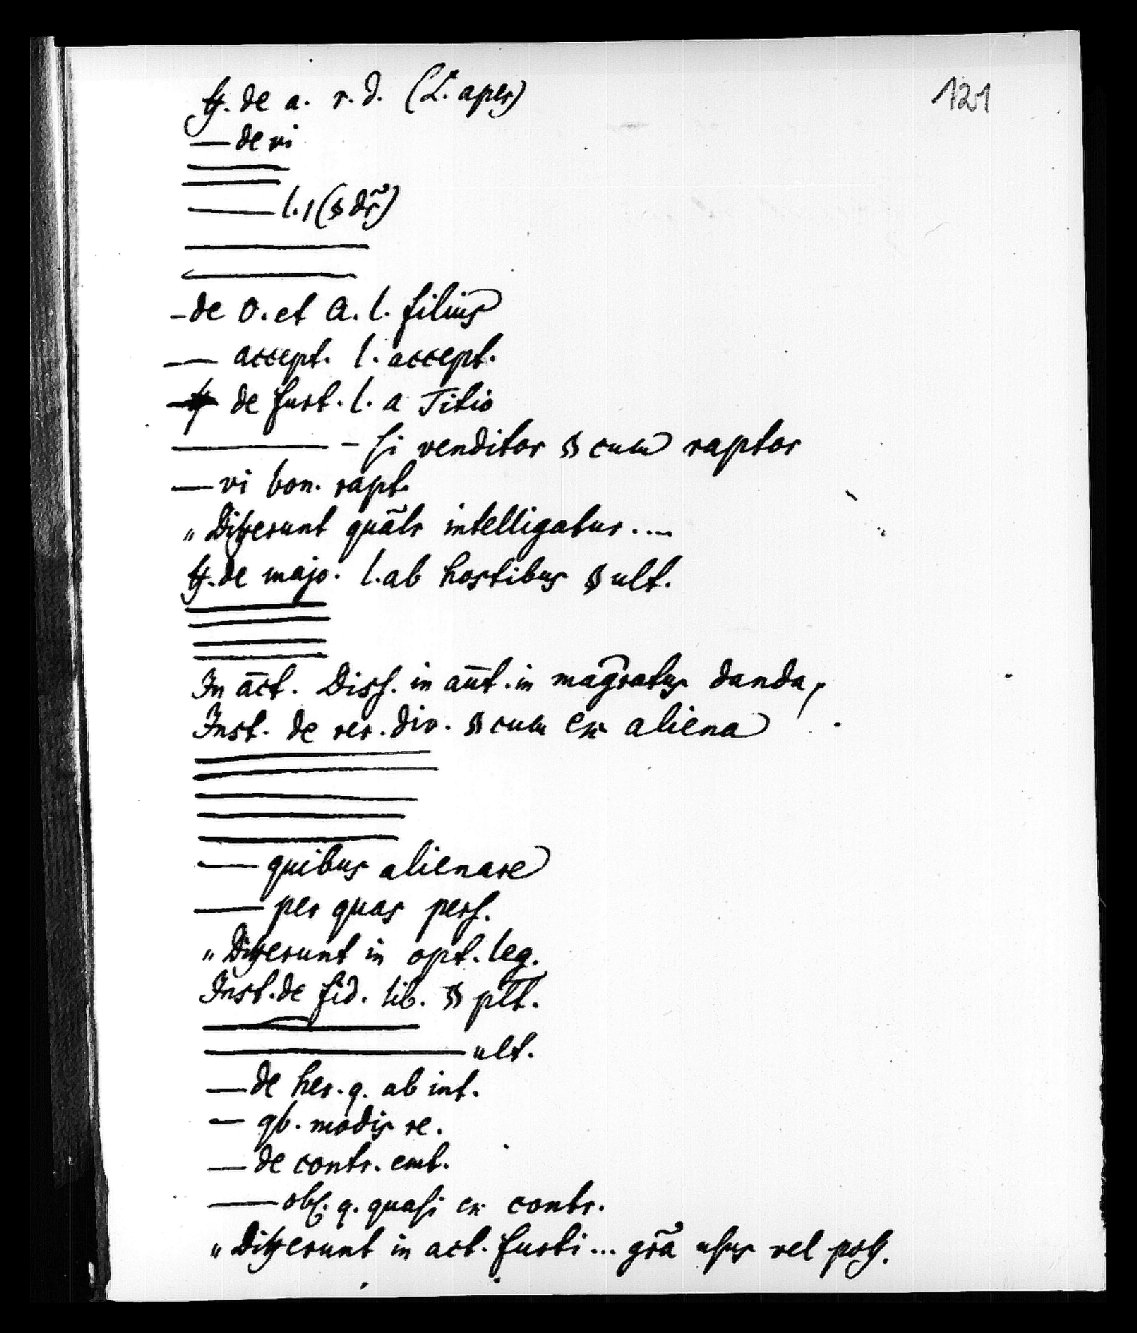 ff. de a. r. d. (L. apes)
121
— de vi
—— l. 1 (§ dr̃)
– de O. et A. l. filius
— accept. l. accept.
ff de furt. l. a Titio
—— – si venditor § cum raptor
— vi bon. rapt.
„ Dixerunt quãlr intelligatur....
ff. de majo. l. ab hostibus § ult.
In āct. Diss. in aūt. in magratus danda,
Inst. de rer. div. § cum ex aliena
— quibus alienare
— per quas pers.
„ Dixerunt in opt. leg.
Inst. de fid. lib. § plt.
—— ult.
— de her. q. ab int.
— qb. modis re.
— de contr. emt.
— obl. q. quasi ex contr.
„ Dixerunt in act. furti ... grã usus vel poss.